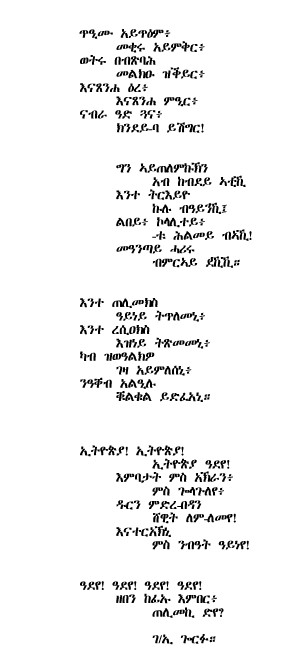 ጥዒሙ አይጥዕም፥
መቂሩ አይምቅር፥
ወትሩ በብጽባሕ
መልክዑ
እናጸንሐ ዕረ፥
እናጸንሐ ምዒር፥
ናብራ ዓድ ጓና፥
ክንደይ-ባ ይሽግር!

ግን ኣይጠለምኩኽን
አብ ከብደይ ኣቲኺ
እንተ ትርእይዮ
ኩሉ ብዓይንኺ፤
ልበይ፥ ኮላሊተይ፥
-ቱ ሕልመይ ብዳኺ!
መዓንጣይ ሓሪሩ
ብምርኣይ ደኺኺ።

እንተ ጠሊመክስ
ዓይነይ ትጥለመኒ፥
እንተ ረሲዐክስ
እዝነይ ትጽመመኒ፥
ካብ ዝወዓልክዎ
ገዛ አይምለሰኒ፥
ንዓቐብ አልዒሉ
ቑልቁል ይድፈአኒ።

ኢትዮጵያ! ኢትዮጵያ!
ኢትዮጵያ ዓደየ!
እምባታት ምስ አኽራን፥
ምስ ጐላጉለየ፥
ዱርን ምድረ-በዳን
ሸዊት ለም-ለመየ!
እናተርአኽኒ
ምስ ንብዓት ዓይነየ!

ዓደየ! ዓደየ! ዓደየ! ዓደየ!
ዘበን ከፊኡ እምበር፥
ጠሊመኪ ድየ?

ገ/ኢ ጐርፉ።